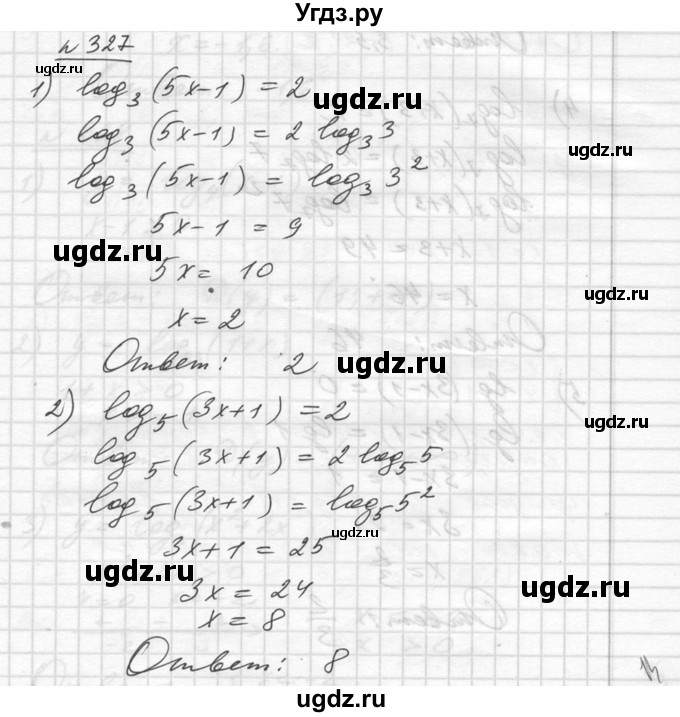 Угдз.ру
№327
ugdz.ru
1) log₃(5x-1) = 2
ugdz.ru
log₃(5x-1) = 2 log₃3
ugdz.ru
log₃(5x-1) = log₃3²
5x-1 = 9
ugdz.ru
ugdz.ru
5x = 10
ugdz.ru
x = 2
Ответ: 2
ugdz.ru
2) log₅(3x+1) = 2
ugdz.ru
log₅(3x+1) = 2 log₅5
log₅(3x+1) = log₅5²
ugdz.ru
3x+1 = 25
ugdz.ru
ugdz.ru
3x = 24
x = 8
Ответ: 8
ugdz.ru
ugdz.ru